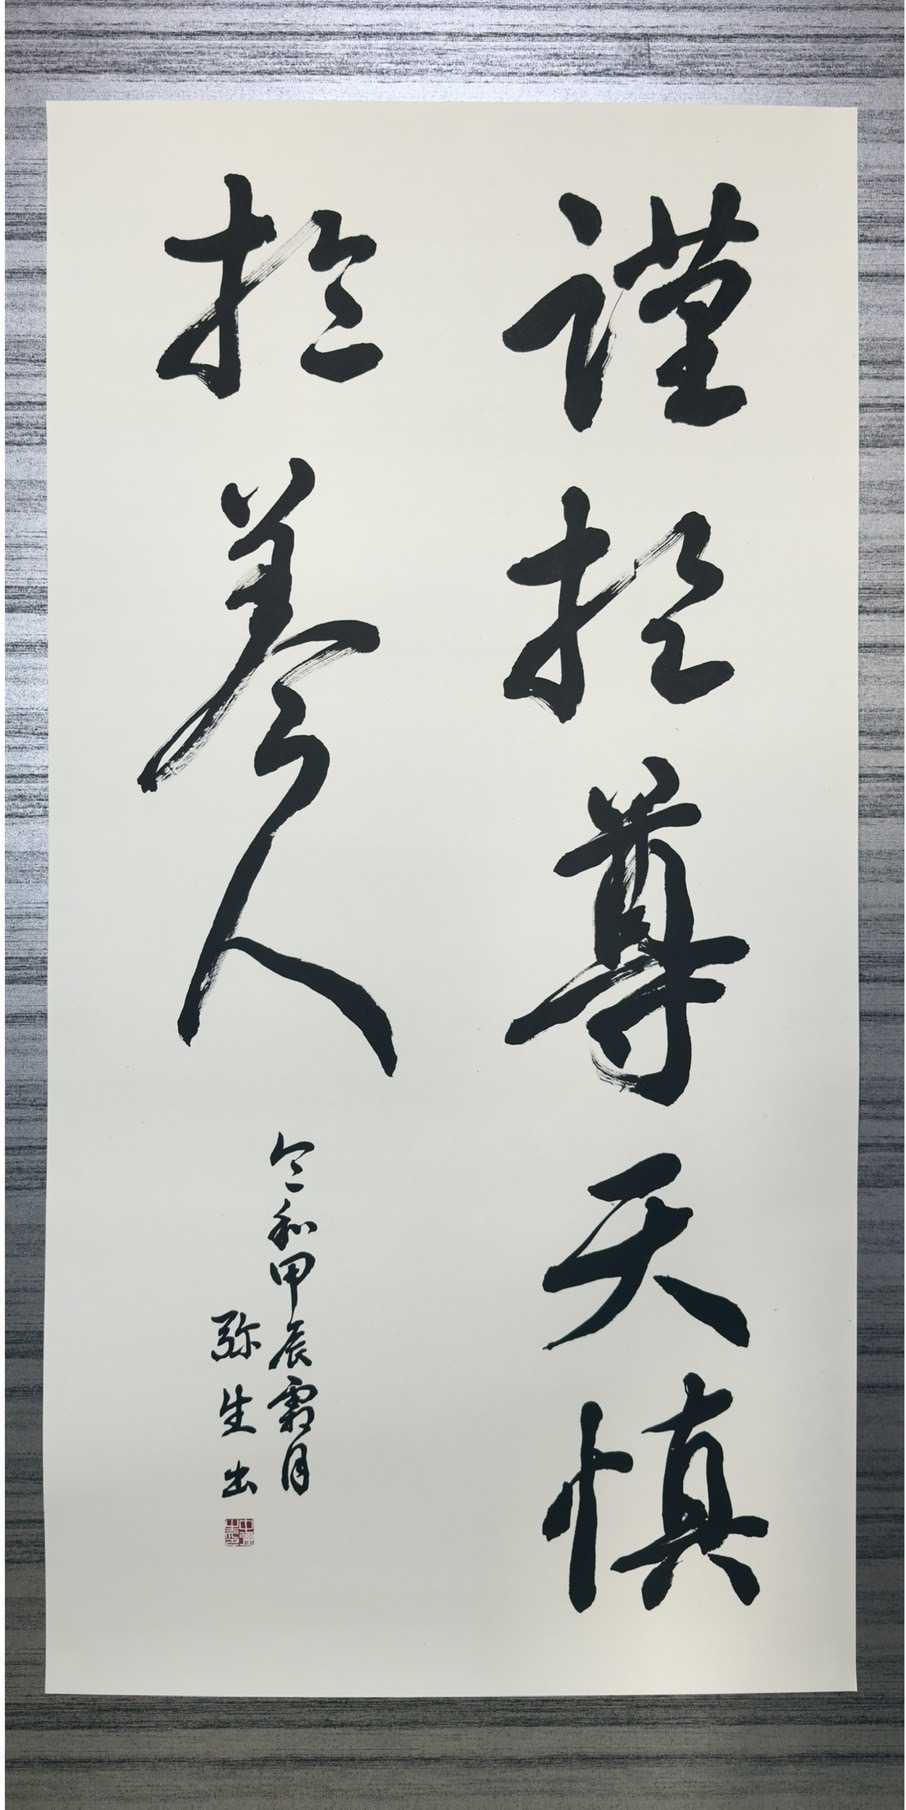 謹於尊天慎
於養人
令和甲辰霜月
弥生出